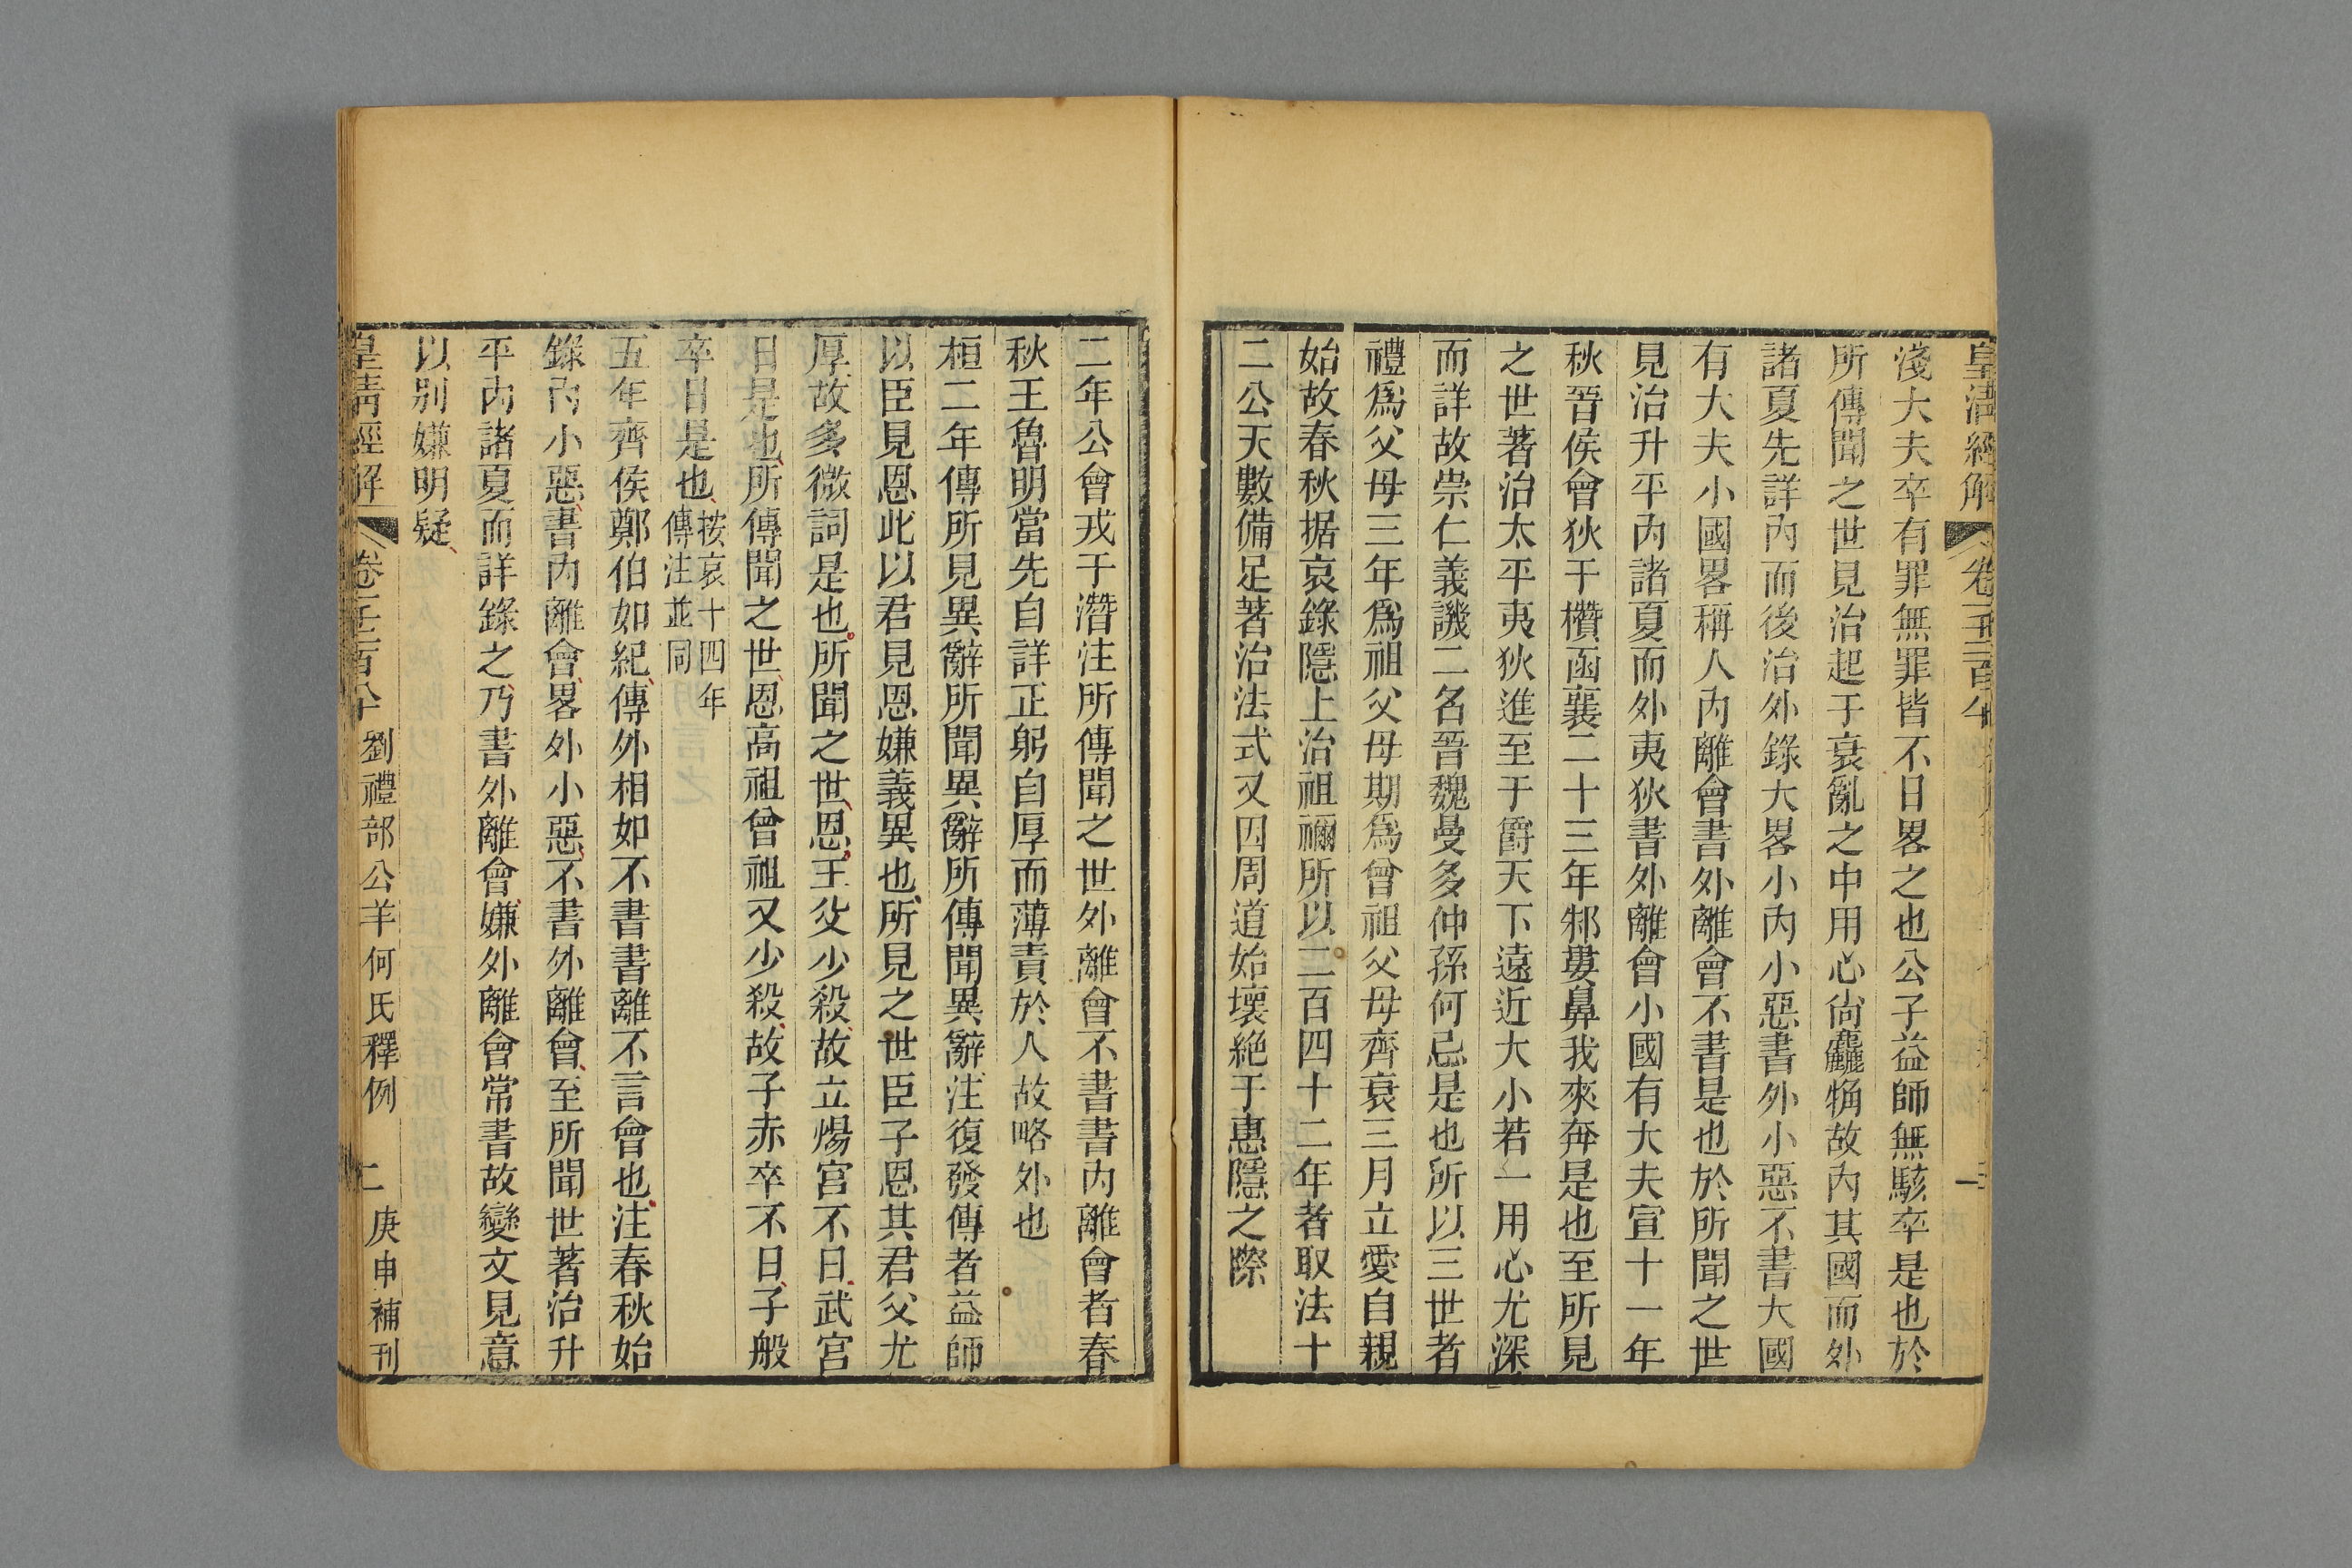 皇清經解
淺大夫卒有罪無罪皆不日畧之也公子益師無駭卒是也於
所傳聞之世見治起于衰亂之中用心尙麤觕故內其國而外
諸夏先詳內而後治外錄大畧小內小惡書外小惡不書大國
有大夫小國畧稱人內離會書外離會不書是也於所聞之世
見治升平內諸夏而外夷狄書外離會小國有大夫宣十一年
秋晉侯會狄于欑函襄二十三年邾婁鼻我來奔是也至所見
之世著治太平夷狄進至于爵天下遠近大小若一用心尤深
而詳故崇仁義譏二名晉魏曼多仲孫何忌是也所以三世者
禮爲父母三年爲祖父母期爲曾祖父母齊衰三月立愛自親
始故春秋据哀錄隱上治祖禰所以二百四十二年者取法十
二公天數備足著治法式又因周道始壞絶于惠隱之際
二年公會戎于潛注所傳聞之世外離會不書書內離會者春
秋王魯明當先自詳正躬自厚而薄責於人故略外也
桓二年傳所見異辭所聞異辭所傳聞異辭注復發傳者益師
以臣見恩此以君見恩嫌義異也所見之世臣子恩其君父尤
厚故多微詞是也所聞之世恩王父少殺故立煬宮不日武宮
日是也所傳聞之世恩高祖曾祖又少殺故子赤卒不日子般
卒日是也按哀十四年傳注並同
五年齊侯鄭伯如紀傳外相如不書書離不言會也注春秋始
錄內小惡書內離會畧外小惡不書外離會至所聞世著治升
平內諸夏而詳錄之乃書外離會嫌外離會常書故變文見意
以別嫌明疑
皇清經解 卷一千二百八十 劉禮部公羊何氏釋例 二 庚申補刊